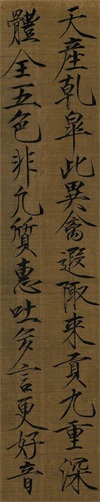 天產乾皋此異禽遐陬來貢九重深
體全五色非凡質惠吐多言更好音